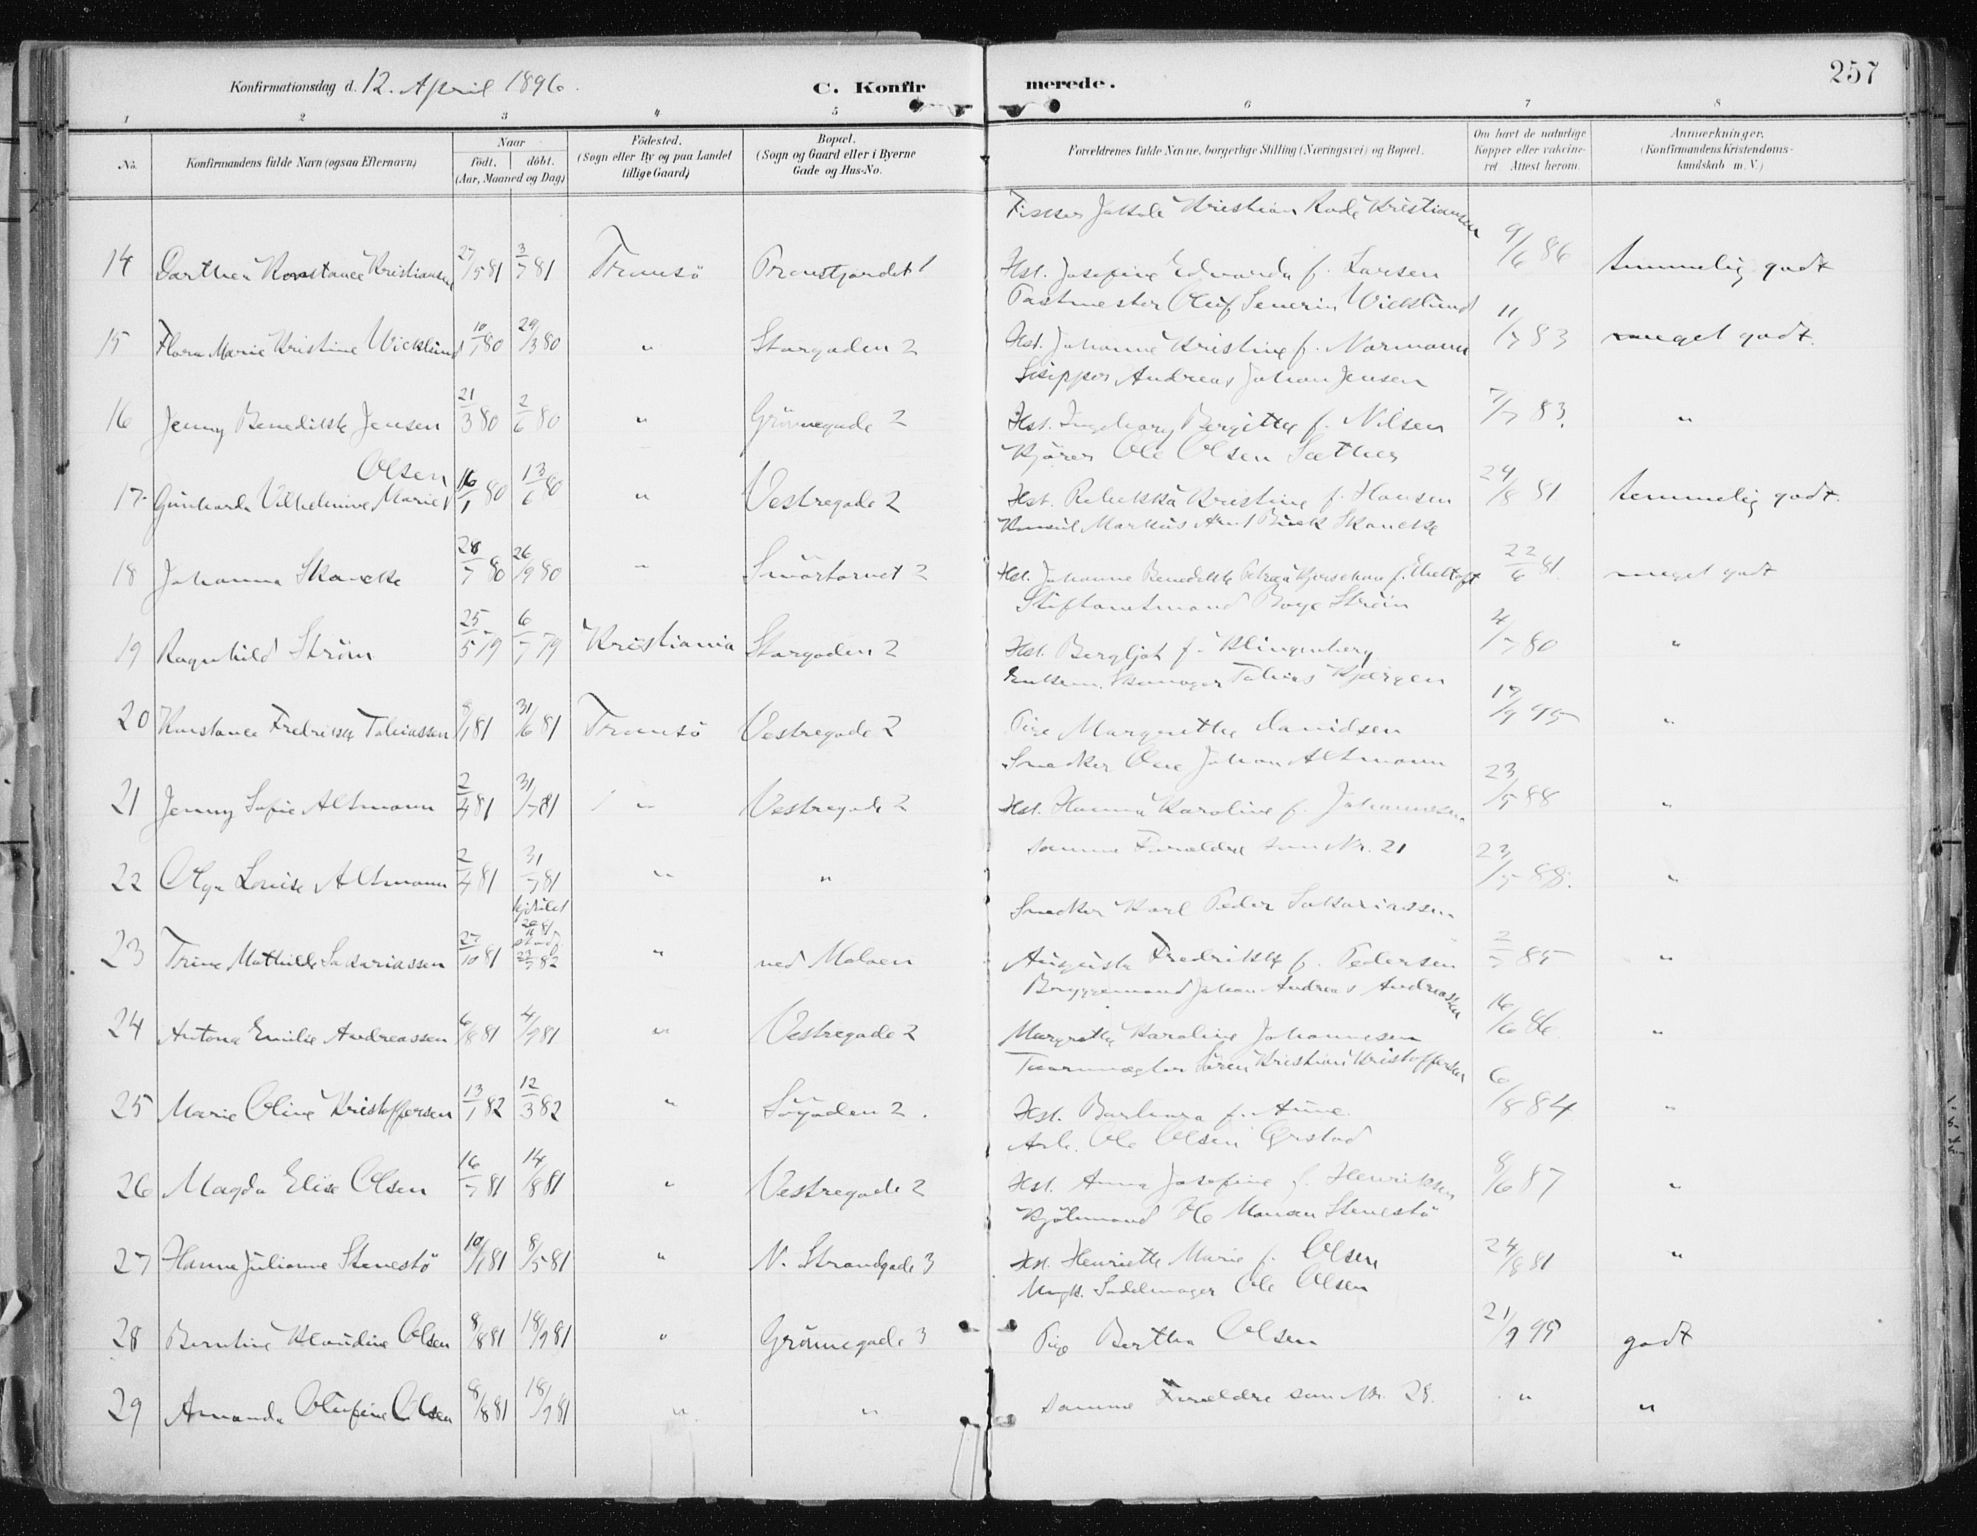 Konfirmationsdag d. 12. April 1896.
C. Konfirmerede.
257
1 2 3 4 5 6 7 8
No. Konfirmandens fulde Navn (ogsaa Efternavn)
Naar
født. døbt.
(Aar, Maaned og Dag)
Fødested.
(Sogn eller By og paa Landet
tillige Gaard)
Bopæl.
(Sogn og Gaard eller i Byerne
Gade og Hus-No.
Forældrenes fulde Navne, borgerlige Stilling (Næringsvei) og Bopæl.
Om havt de naturlige
Kopper eller vakcine-
ret Attest herom.
Anmærkninger.
(Konfirmandens Kristendoms-
kundskab m. V.)
Fisker Kristian Kristiansen
14 Konstance Kristiansen 27/5 81 3/7 81 Tromsö 1 Hst. Josefine Edvarda f. Larsen 9/6 86 temmelig godt
Oluf Severin Wicklund
15 Flora Marie Kristine Wicklund 10/1 80 29/3 80 " Storgaden 2 Hst. Johanne Kristine f. Normann 11/7 83 meget godt.
Skipper Andreas Johan Jensen
16 Jenny Benedikte Jensen 21/3 80 2/6 80 " Grönnegade 2 Hst. Ingeborg Bergitte f. Nilsen 7/7 83. "
Kjører Ole Olsen Sæther
Olsen
17 Vilhelmine Marie 16/1 80 13/6 80 " Vestregade 2 Hst. Rebekka Kristine f. Hansen 24/8 81 temmelig godt.
Konsul Markus Skancke
18 Johanna Skancke 28/7 80 26/9 80 " Smörtorvet 2 Hst. Johanne Benedikte 22/6 81. meget godt
Stiftamtmand Boye Strøm
19 Ragnhild Strøm 25/5 79 6/7 79 Kristiania Storgaden 2 Hst. Bergljot f. Klingenberg 4/7 80 "
Enkem. Skomager Tobias
20 Konstance Fredrikke Tobiassen 31/6 81 Tromsö Vestregade 2 Pige Margrethe Davidsen 17/9 95 "
Snedker Johan Altmann
21 Jenny Sofie Altmann 2/4 81 31/7 81 " Vestregade 2 Hst. Hanna Karoline f. Johannesen 23/5 88 "
22 Olga Louise Altmann 2/4 81 31/7 81 " " samme Forældre som Nr. 21 23/5 88. "
Snedker Karl Peder Sakariassen
23 Trine Mathilde Sakariassen 27/10 81 " ved Moloen Augusta Fredrikke f. Pedersen 2/7 85 "
Bryggemand Johan Andreas Andreassen
24 Antona Emilie Andreassen 6/8 81 4/9 81 " Vestregade 2 Margrethe Karoline Johannesen 16/6 86. "
Søren Kristian Kristoffersen
25 Marie Oline Kristoffersen 13/1 82 12/3 82 " Søgaden 2. Hst. Barbara f. Aune. 6/8 84 "
Arb. Ole Olsen
26 Magda Elise Olsen 16/7 81 14/8 81 " Vestregade 2 Hst. Anna Josefine f. Henriksen 8/6 87 "
Ole Stenestö
27 Hanna Julianne Stenestö 8/5 81 " N. Strandgade 3 Hst. Henriette Marie f. Olsen 24/8 81 "
Ungk. Sadelmager Ole Olsen
28 Klaudine Olsen 8/8 81 18/9 81 " Grönnegade 3 Pige Bertha Olsen 21/9 95 godt
29 Amanda Olufine Olsen 8/8 81 18/9 81 " " samme Forældre som Nr. 28. " "